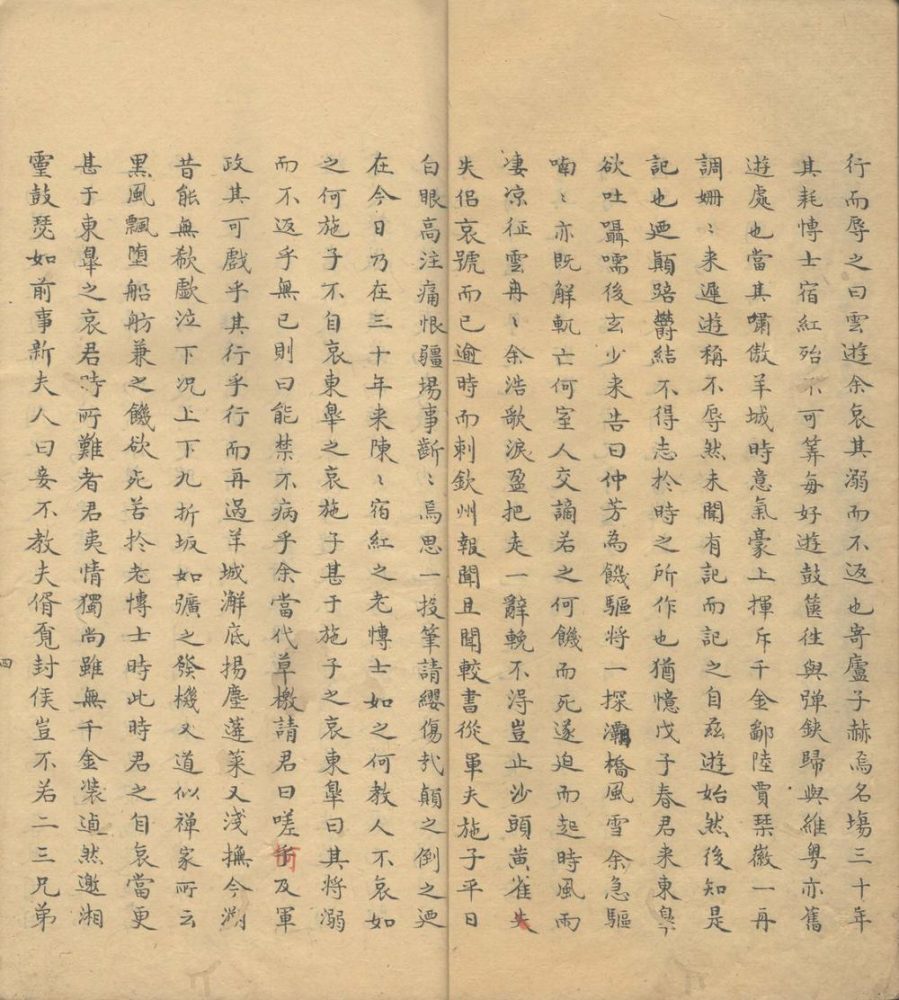 行而辱之曰雲遊余哀其溺而不返也寄廬子赫焉名塲三十年
其耗慱士宿紅殆不可筭每好遊鼓箧徃與弹鋏歸與維粤亦舊
遊處也當其嘯傲羊城時意氣豪上揮斥千金鄙陸賈琹徽一再
調姍〻来遲遊稱不辱然未聞有記而記之自兹遊始然後知是
記也廼顛踣欝结不得志扵時之所作也猶憶戊子春君来東皐
欲吐躡嚅後玄少来告曰仲芳為饑驅将一探灞橋風雪余急驅
喃〻亦既解軏亡何室人交謫若之何饑而死遂迫而起時風雨
凄凉征雲冉〻余浩歌淚盈把走一辭輓不淂豈止沙頭黄雀失
失侣哀號而已逾時而刺欽州報聞且聞較書從軍夫施子平日
白眼高注痛恨疆塲事齗〻焉思一投筆請纓傷㢤顛之倒之廼
在今日乃在三十年来陳〻宿紅之老慱士如之何教人不哀如
之何施子不自哀東皐之哀施子甚于施子之哀東皐曰其将溺
而不返乎無已則曰能禁不病乎余當代草檄請君曰嗟衝及軍
政其可戲乎其行乎行而再過羊城澥底揚塵蓬莱又淺撫今溯
昔能無欷歔泣下况上下九折坂如彍之發機又道似禅家所云
黒風飄墮船舫兼之饑欲死苦扵老慱士時此時君之自哀當更
甚于東皐之哀君時所難者君夷情獨尚雖無千金装逌然邀湘
靈鼓瑟如前事新夫人曰妾不教夫偦覔封侯豈不若二三兄弟
四